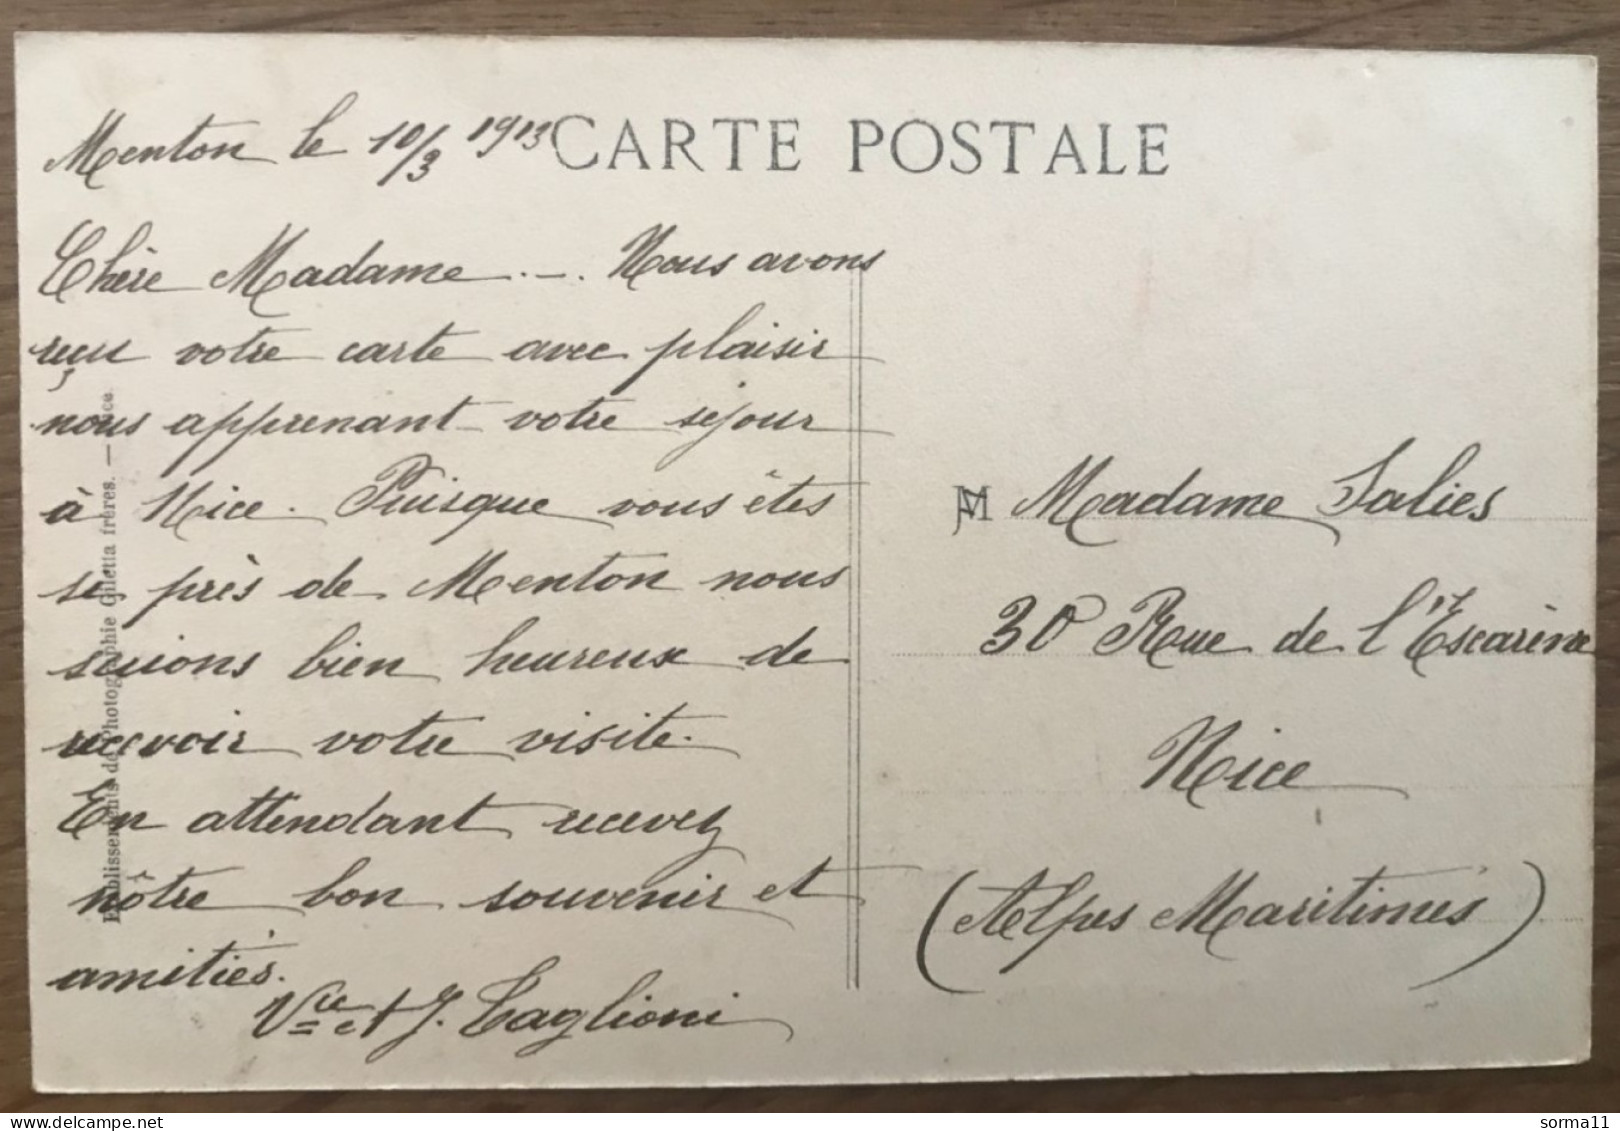 CARTE POSTALE
Menton le 10/3 1913
Chère Madame . — . Nous avons
reçu votre carte avec plaisir
nous apprenant votre sejour
à Nice. Puisque vous êtes
si près de Menton nous
serions bien heureux de
recevoir votre visite.
En attendant recevez
nôtre bon souvenir et
amitiés.
Vie et J. Taglioni
Madame Salies
30 Rue de l'Escarène
Nice
(Alpes Maritimes)
Etablissements de Photographie Giletta frères. — Nice.
sorma11